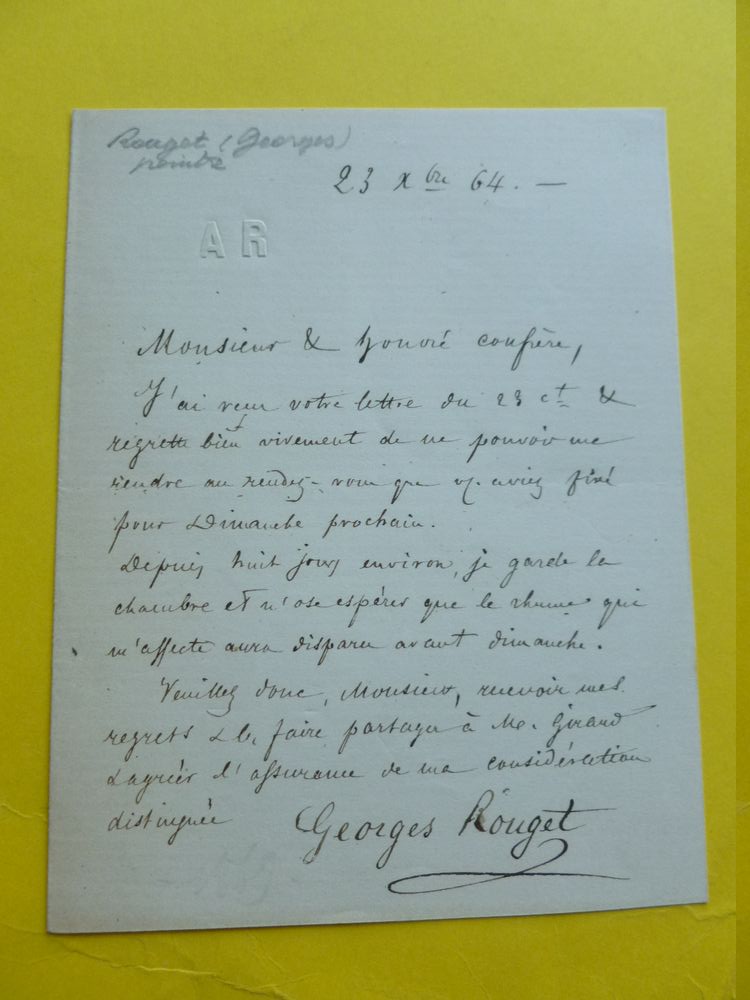 Rouget (Georges)
peintre
23 Xbre 64. —
AR
Monsieur & honoré confrère,
J'ai reçu votre lettre du 23 ct &
regrette bien vivement de ne pouvoir me
rendre au rendez-vous que vs. aviez fixé
pour Dimanche prochain.
Depuis huit jours environ, je garde la
chambre et n'ose espérer que le rhume qui
m'affecte aura disparu avant dimanche.
Veuillez donc, Monsieur, recevoir mes
regrets & les faire partager à Mr. Giraud
& agréer l'assurance de ma considération
distinguée
Georges Rouget